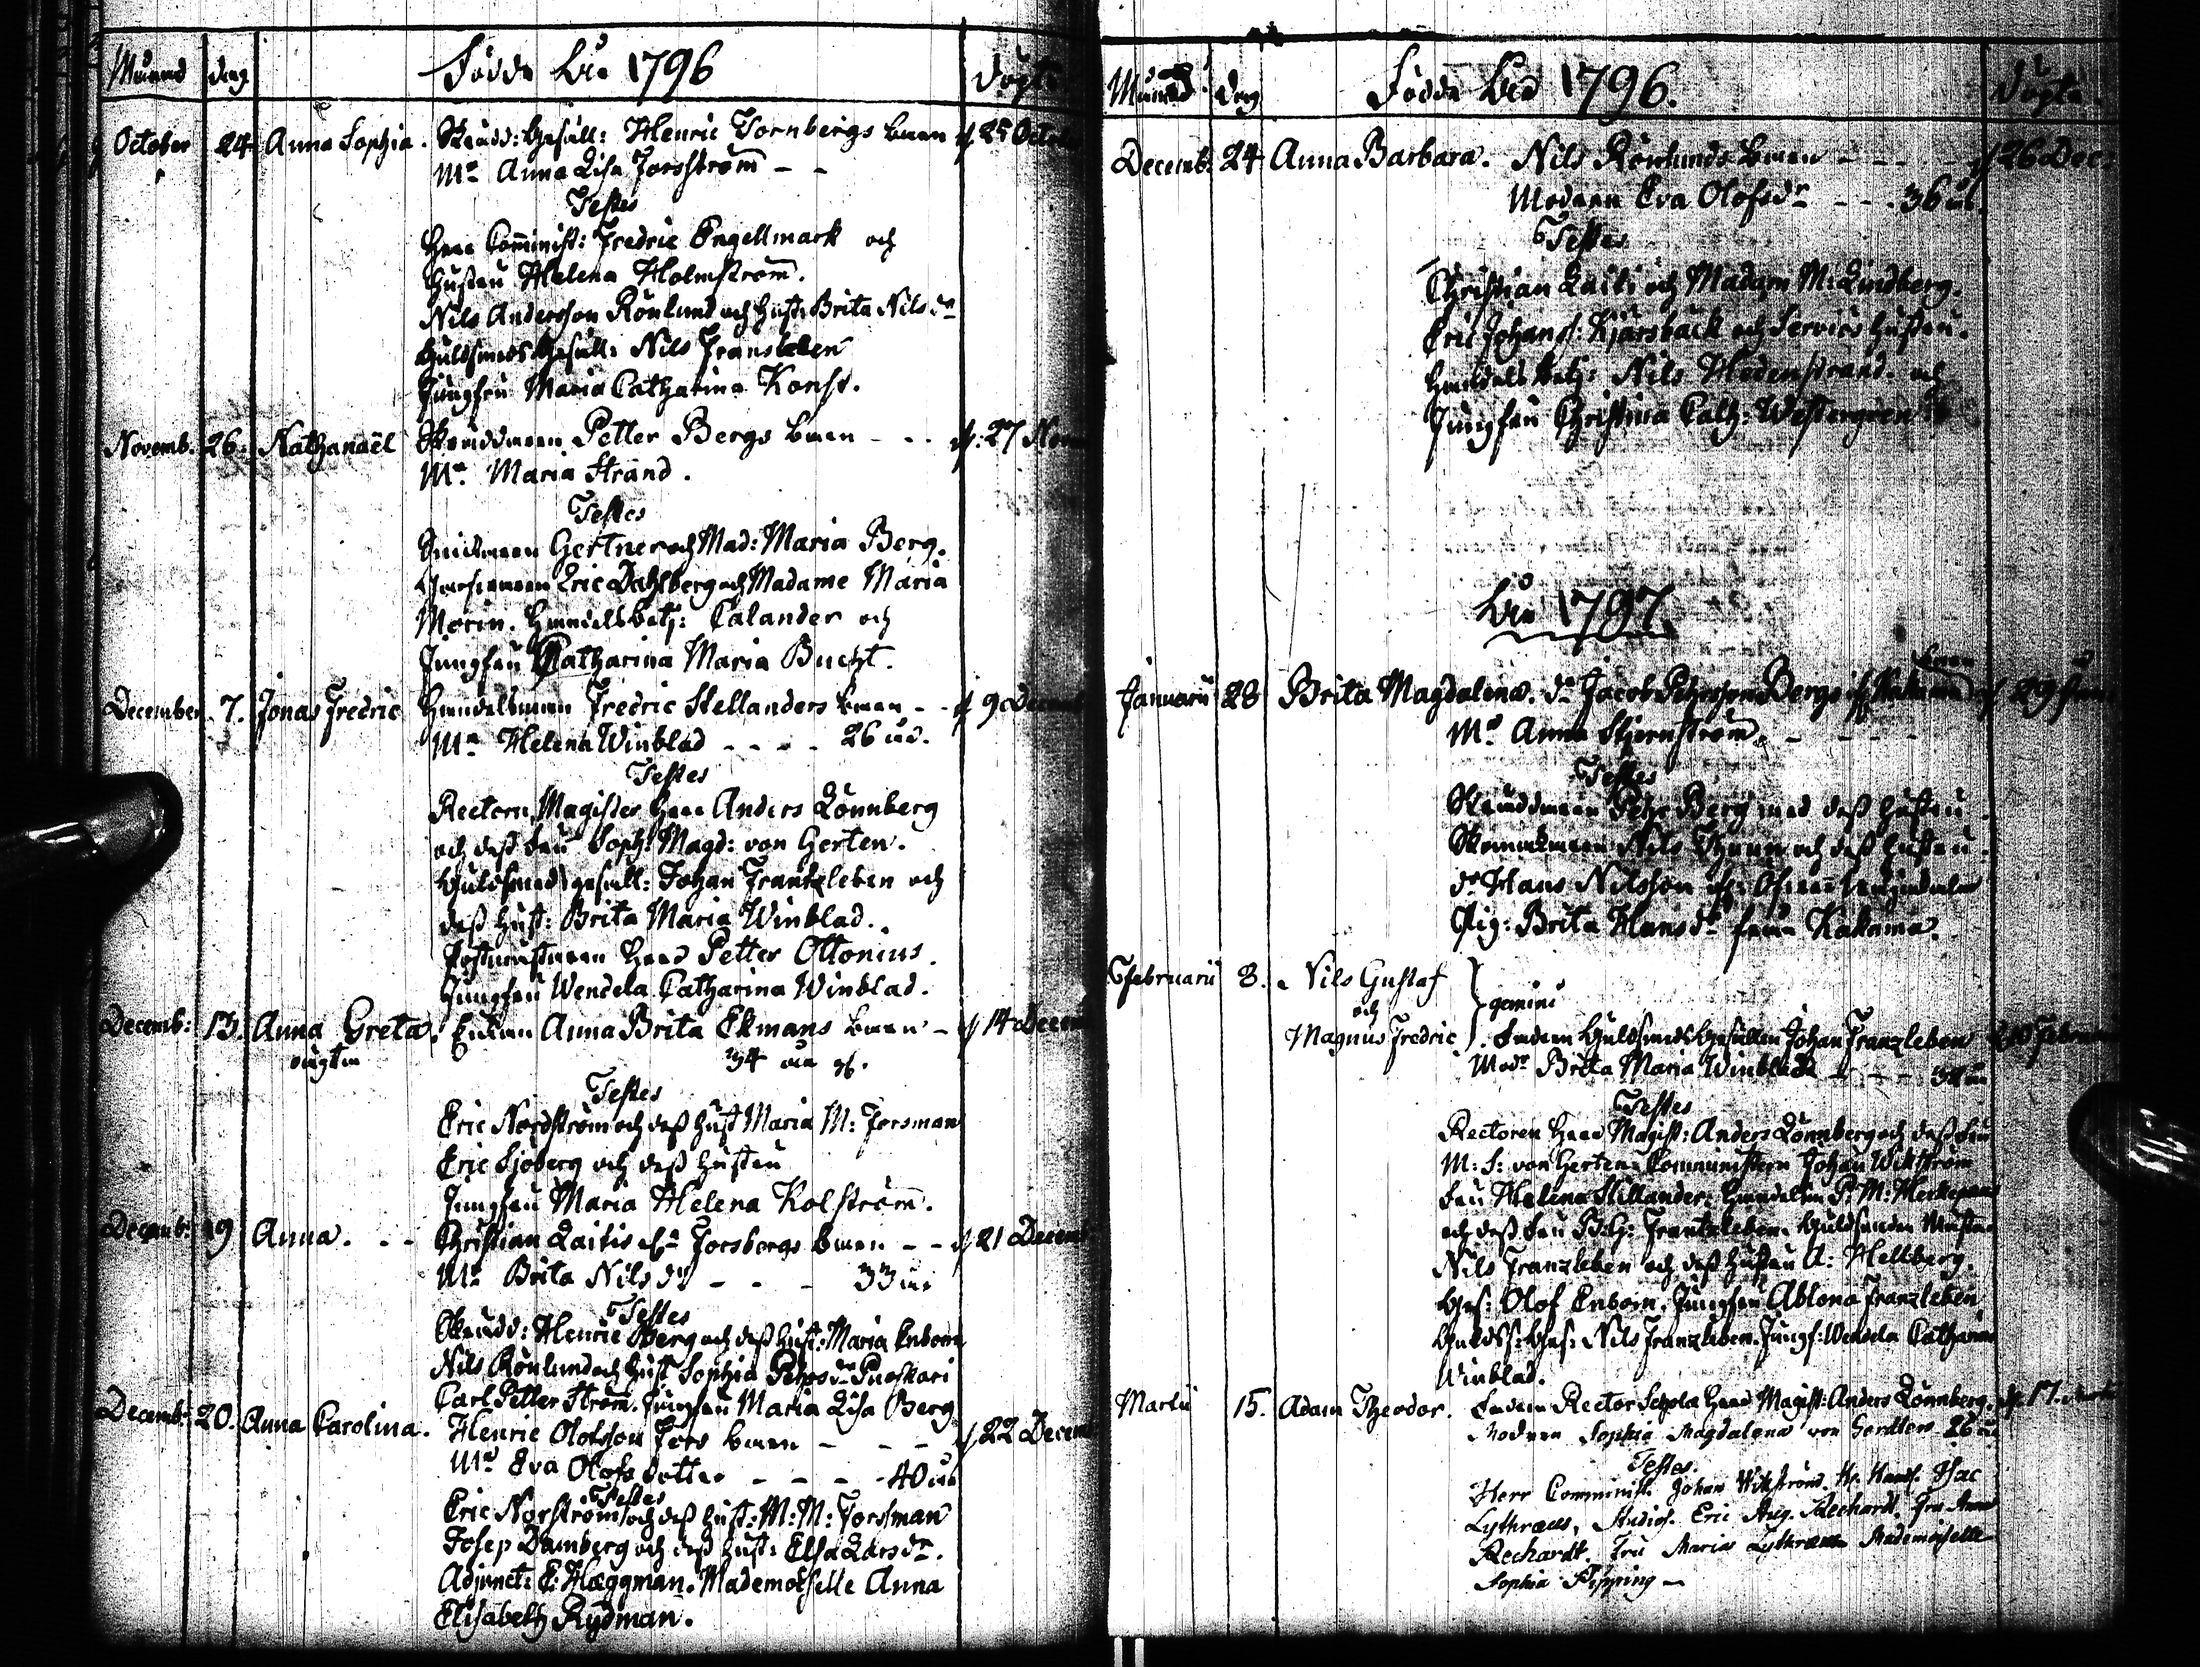 Månad dag Födde Åhr 1796 döpte
October 24 Anna Sophia. Skrädd: Gesäll: Henric Tornbergs barn d. 25 Octob
Mr Anna Lisa Forsström - -
Testes
Herr Comminist: Fredric Engellmark och
Hustru Helena Holmström.
Nils Andersson Rönlund och Hust: Brita Nils dr
Guldsmeds Gesäll: Nils Fransleben
Jungfru Maria Catharina Konst.
Novemb. 26. Nathanaël Skräddaren Petter Bergs barn - - d. 27 Nov
Mr Maria Strand.
Testes
Gertner och Mad: Maria Berg.
Eric Dahlberg och Madame Maria
Morin. Handelsbetj: Calander och
Jungfru Catharina Maria Bucht.
December 7. Jonas Fredric Handelsman Fredric Stellanders barn - - d 9 Decemb
Mr Helena Winblad - - - - 26 åhr.
Testes
Rectorn Magister Herr Anders Lönnberg
och dess Fru Soph: Magd: von Gerten.
Guldsmeds gesäll: Johan Frantzleben och
dess Hust: Brita Maria Winblad.
Postmästaren Herr Petter Ottonius.
Jungfru Wendela Catharina Winblad.
Decemb: 13. Anna Greta. Enkan Anna Brita Ekmans barn - d 14 Decem
oägta 34 åhr g.
Testes
Eric Nordström och dess Hust Maria M: Forsman
Eric Sjöberg och dess Hustru
Jungfru Maria Helena Kolström.
Decemb: 19 Anna. - - Christian Laitis Forsbergs barn - - d 21 Decemb
Mr Brita Nils dr - - - 33 åhr
Testes
Skrädd: Henric Berg och dess Hust: Maria Enbom
Nils Rönlund och Hust Sophia Pehrs dr Puoskari
Carl Petter Ström. Jungfru Maria Lisa Berg
Decemb: 20. Anna Carolina. Henric Olofsson Fors barn - - - d 22 Decem
Mr Eva Olofs dotter - - - - 40 åhr
Testes
Eric Norström och dess Hust: M: M: Forssman
Josep Damberg och dess Hust: Elsa Lars dr.
Adjunct: E: Hæggman. Mademoiselle Anna
Elisabeth Rydman.
Månad dag Födde Åhr 1796. döpte
Decemb: 24 Anna Barbara. Nils Rönlunds barn - - - - d 26 Dec.
Modren Eva Olofsdr - - . 36 åhr.
Testes
Christian Laiti och Madam M: Lindberg.
Eric Johans: Kjärsbäck och Hustru.
Handels betj: Nils Hedenstrand. och
Jungfru Christina Cath: Westergren
Åhr 1797.
Januarii 28 Brita Magdalena. dr Jacob Pehrsson Bergs barn d 29 Jan
Mr Anna Stjernström. - - - -
Testes
Skräddaren Pehr Berg med dess Hustru
Nils Thun och dess Hustru.
dr Hans Nilsson
Pig: Brita Hans dr från Kakama.
Februarii 8. Nils Gustaf
och gemini
Magnus Fredric. Fadren Guldsmeds Gesällen Johan Franzleben d 10 Februar
Modr Brita Maria Winblad - - - 32 åhr
Testes
Rectoren Herr Magist: Anders Lönnberg och dess Fru
M: S: von Gerten. Comministern Johan Wikström
Fru Helena Stillander.
och dess Fru B: C: Frantzleben. Guldsmeden
Nils Franzleben och dess Hustru A: Hellberg.
Ges: Olof Enbom. Jungfru Ablona Franzleben.
Gulds: Ges: Nils Franzleben. Jungf: Wendela Catharina
Winblad.
Martii 15. Adam Theodor. Fadren Rector Schola Herr Magist: Anders Lönnberg. d. 17. Martii
Modren Sophia Magdalena von Gerdters 26 åhr
Testes.
Herr Comminist. Johan Wikström. Hr. Handl. Isac
Lythræus, Studios. Eric Aug. Rechardt. Fru Anna
Rechardt. Fru Maria Lythræus Mademoiselle
Sophia Flipping -